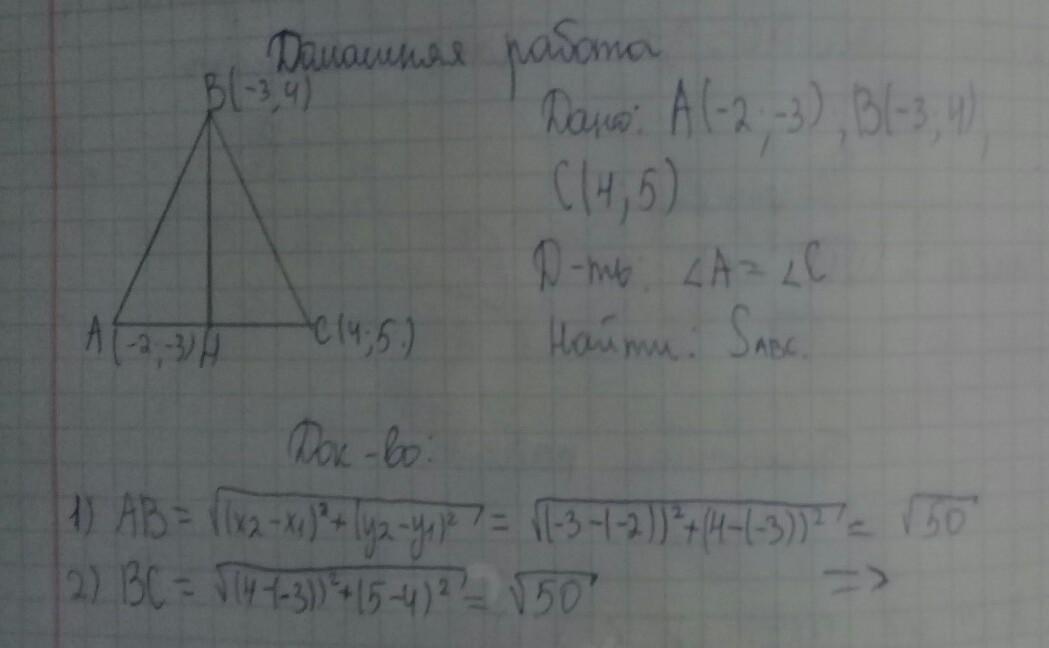 Домашняя работа
B(-3,4)
Дано: A(-2;-3), B(-3,4),
C(4,5)
Д-ть. ∠A = ∠C
Найти: S_ABC.
A(-2;-3) H C(4;5.)
Док-во:
1) AB = √((x₂-x₁)²+(y₂-y₁)²) = √(-3-(-2))²+(4-(-3))² = √50
2) BC = √(4-(-3))²+(5-4)² = √50 =>